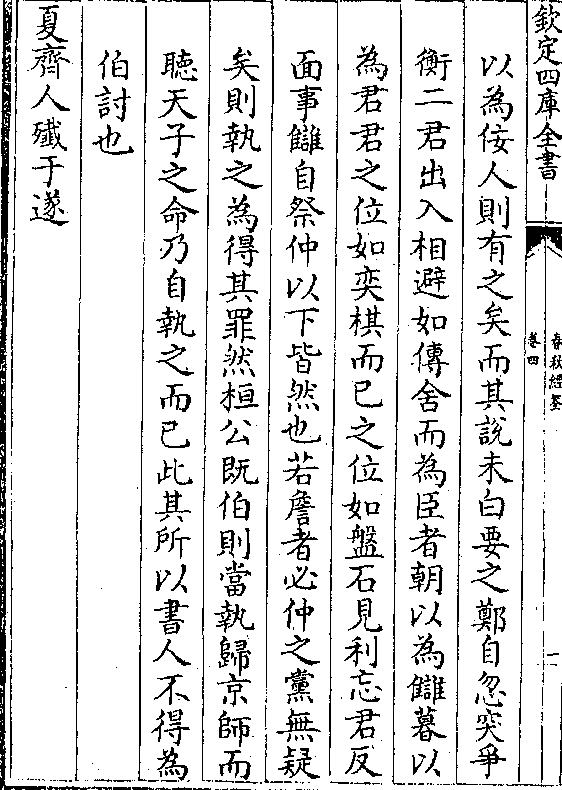 欽定四庫全書
春秋經筌
卷四
一
以為佞人則有之矣而其說未白要之鄭自忽突爭
衡二君出入相避如傳舍而為臣者朝以為讎暮以
為君君之位如奕棋而已之位如盤石見利忘君反
面事讎自祭仲以下皆然也若詹者必仲之黨無疑
矣則執之為得其罪然桓公既伯則當執歸京師而
聽天子之命乃自執之而已此其所以書人不得為
伯討也
夏齊人殲于遂